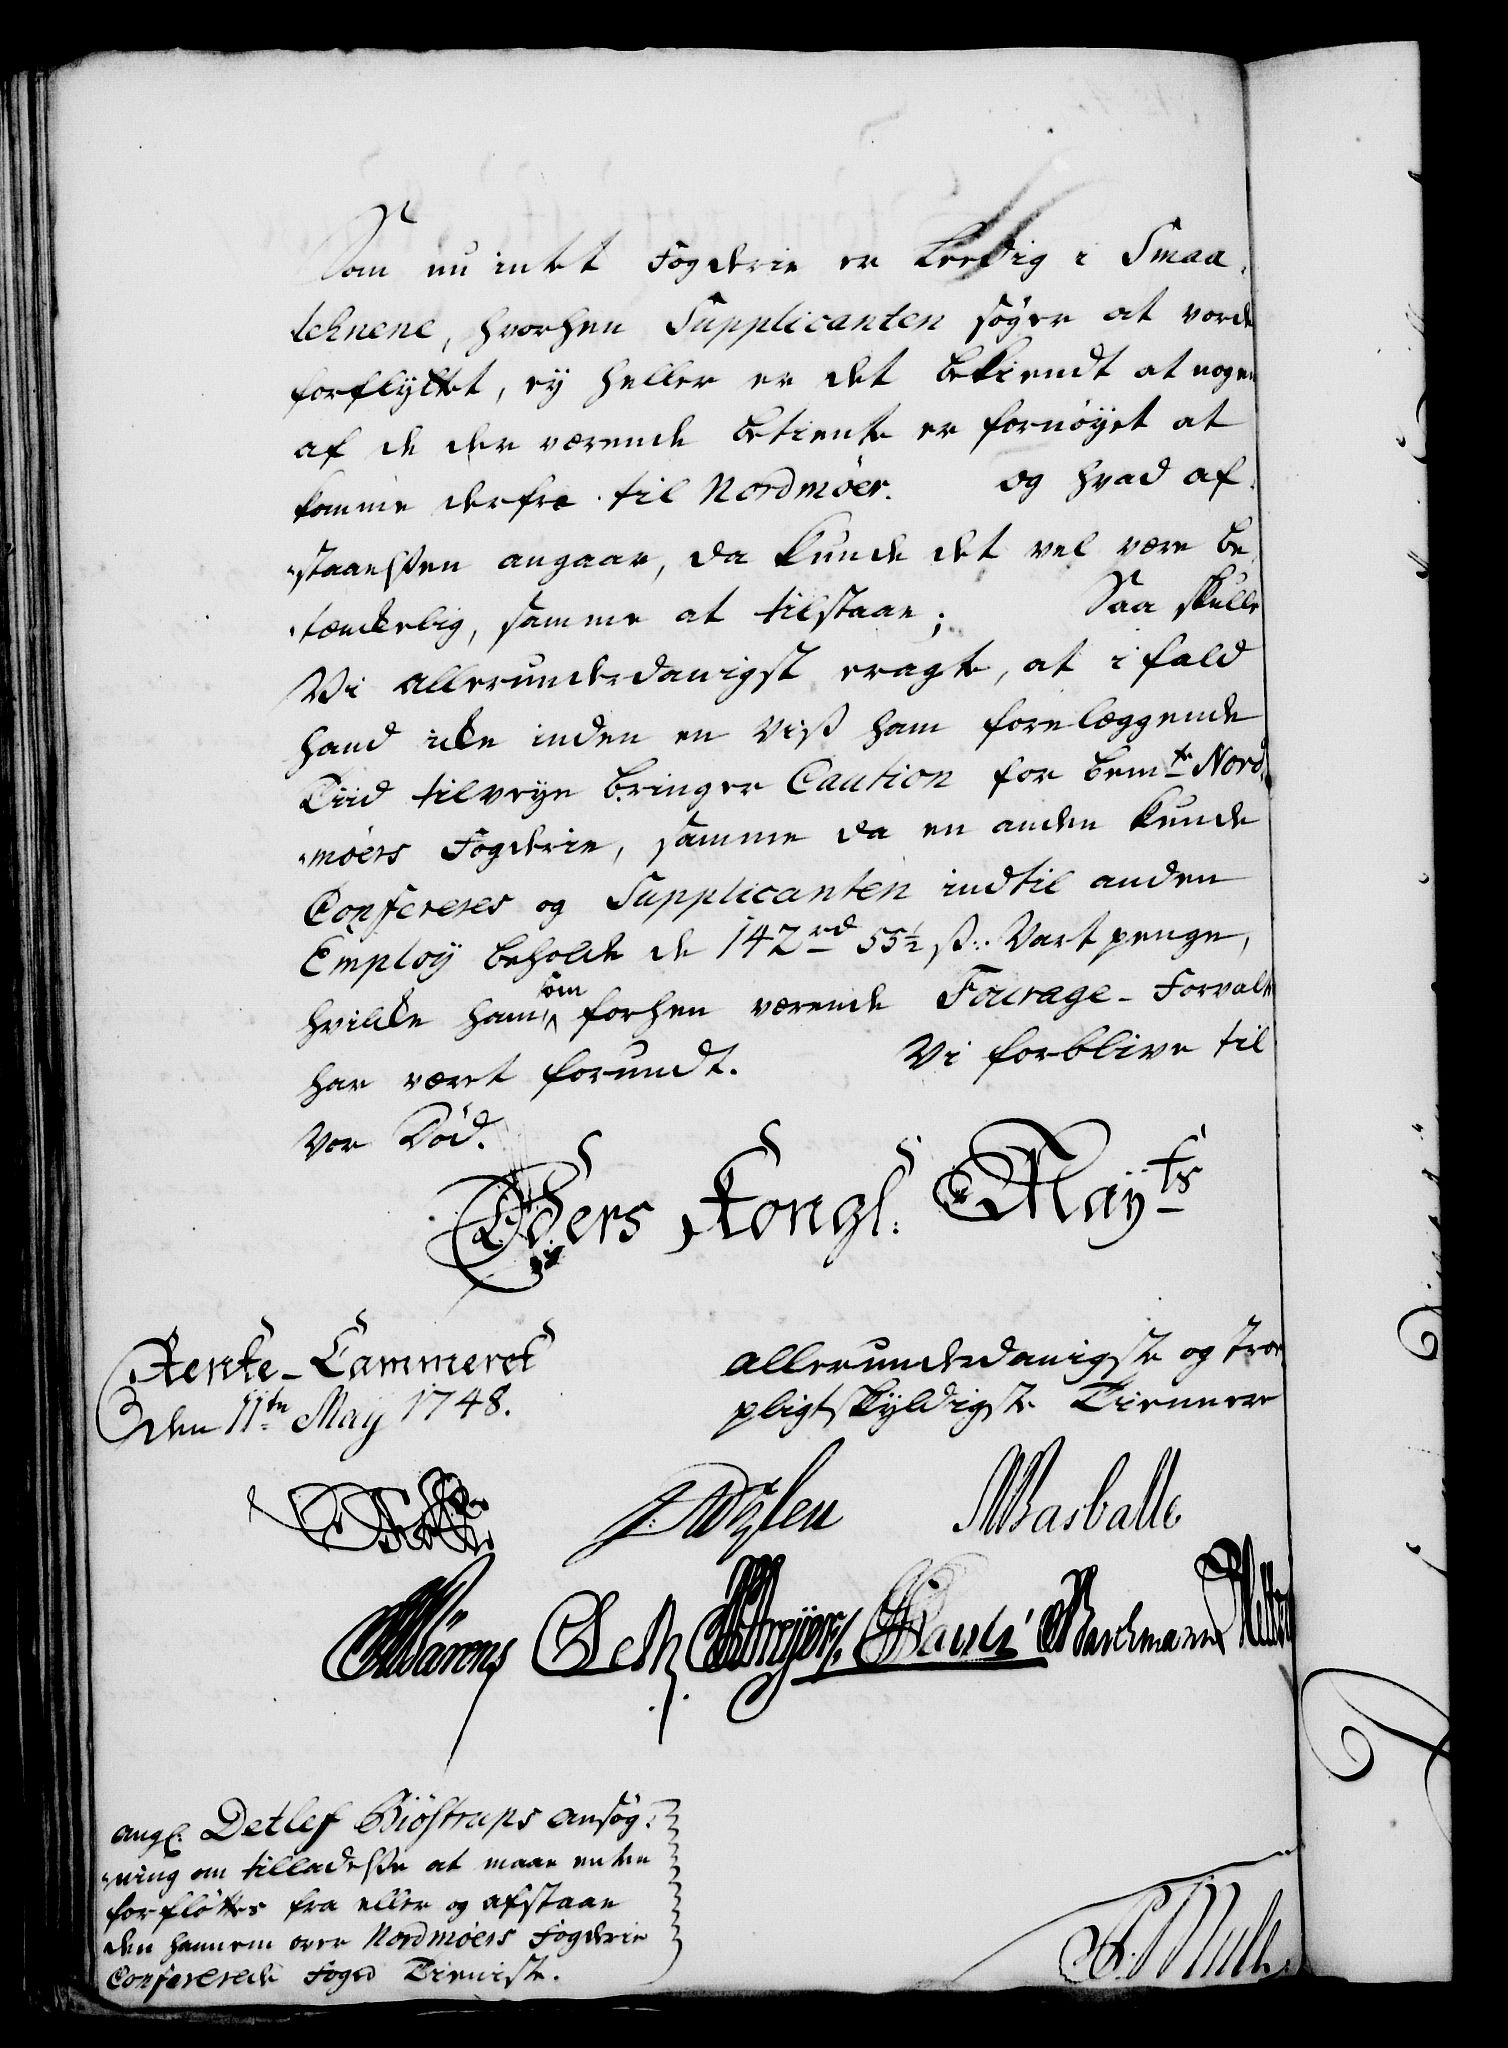 Som nu intet Fogderie er Leedig i Smaa-
lehnene, hvorhen Supplicanten søger at vorde
forflyttet, ey heller er det bekiendt at nogen
af de der værende betiente er fornøyet at
komme derfra til Nordmøer. og hvad af-
staaelsen angaar, da kunde det vel være be-
tænckelig, samme at tilstaae; Saa skulle
Vi allerunderdanigst eragte, at i fald
hand icke inden en viß ham forelæggende
Tiid tilveye bringer Caution for bemte Nord-
møers Fogderie, samme da en anden kunde
Confereres og Supplicanten indtil anden
Employ beholde de 142 rd 55½ ß: Vartpenge,
hvilke ham som forhen værende Fourage-Forvalter
har været forundt. Vi forblive til
vor Død.
Eders Kongl: Mayts
Rente-Cammeret
den 11te May 1748.
allerunderdanigste og troe
pligtskyldigste Tiennere
Basballe
angl: Detlef Biöstrups ansøg-
ning om tilladelße at maae enten
forfløttes fra eller og afstaae
den hannem over Nordmøers Fogderie
Confererede Foged Tieniste.